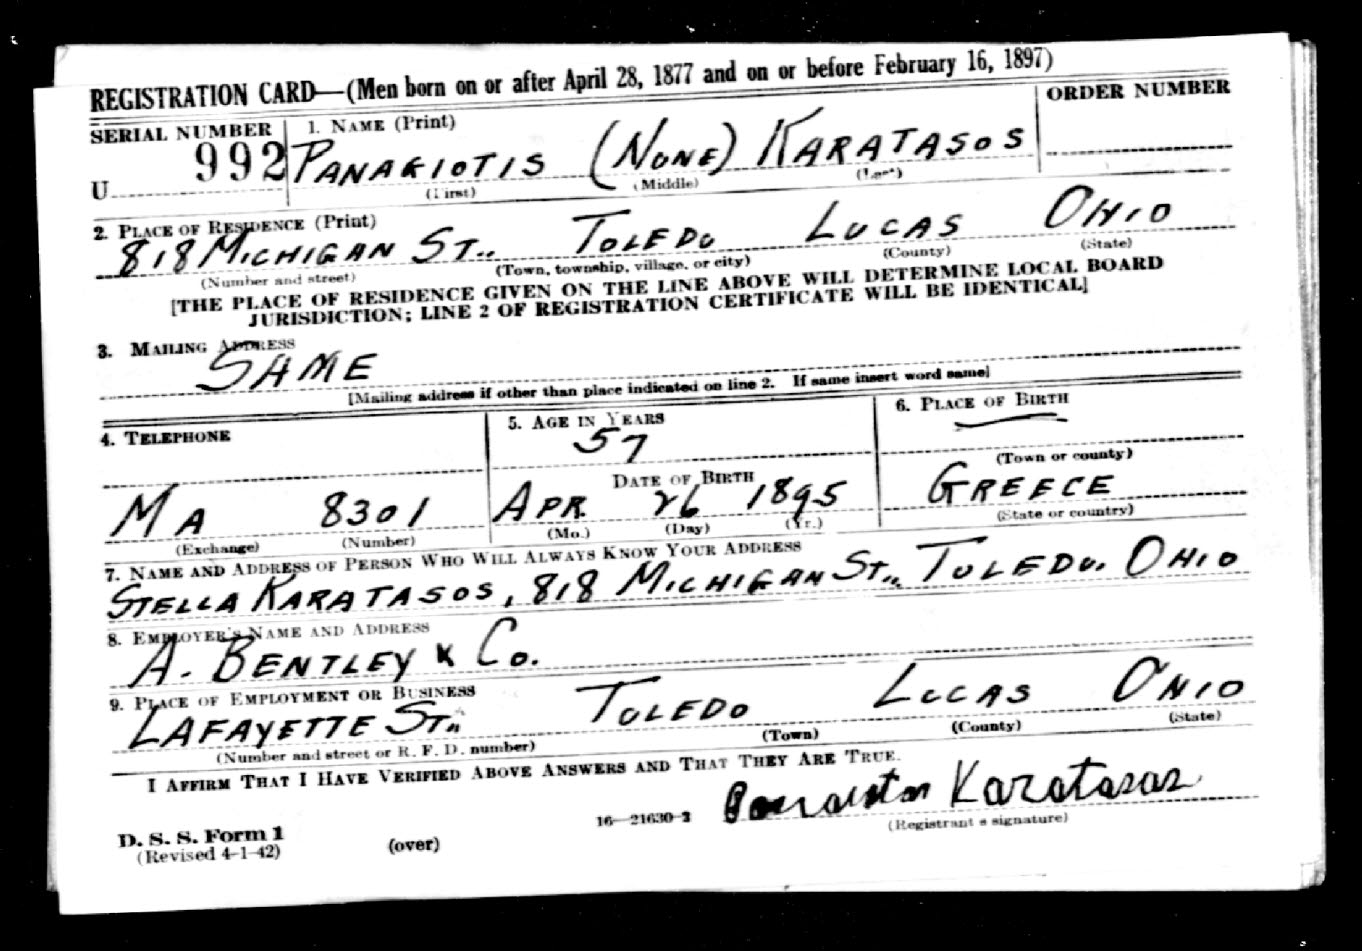 REGISTRATION CARD—(Men born on or after April 28, 1877 and on or before February 16, 1897)
SERIAL NUMBER
1. NAME (Print)
ORDER NUMBER
U 992
PANAGIOTIS (NONE) KARATASOS
(First) (Middle) (Last)
2. PLACE OF RESIDENCE (Print)
818 MICHIGAN ST., TOLEDO LUCAS OHIO
(Number and street) (Town, township, village, or city) (County) (State)
[THE PLACE OF RESIDENCE GIVEN ON THE LINE ABOVE WILL DETERMINE LOCAL BOARD
JURISDICTION; LINE 2 OF REGISTRATION CERTIFICATE WILL BE IDENTICAL]
3. MAILING ADDRESS
SAME
[Mailing address if other than place indicated on line 2. If same insert word same]
4. TELEPHONE
5. AGE IN YEARS
6. PLACE OF BIRTH
57
(Town or county)
DATE OF BIRTH
MA 8301 APR 26 1895 GREECE
(Exchange) (Number) (Mo.) (Day) (Yr.) (State or country)
7. NAME AND ADDRESS OF PERSON WHO WILL ALWAYS KNOW YOUR ADDRESS
STELLA KARATASOS, 818 MICHIGAN ST., TOLEDO, OHIO
8. EMPLOYER'S NAME AND ADDRESS
A. BENTLEY & CO.
9. PLACE OF EMPLOYMENT OR BUSINESS
LAFAYETTE ST. TOLEDO LUCAS OHIO
(Number and street or R. F. D. number) (Town) (County) (State)
I AFFIRM THAT I HAVE VERIFIED ABOVE ANSWERS AND THAT THEY ARE TRUE.
Karatasas
D. S. S. Form 1
(Revised 4-1-42)
(over)
16—21630-2
(Registrant's signature)